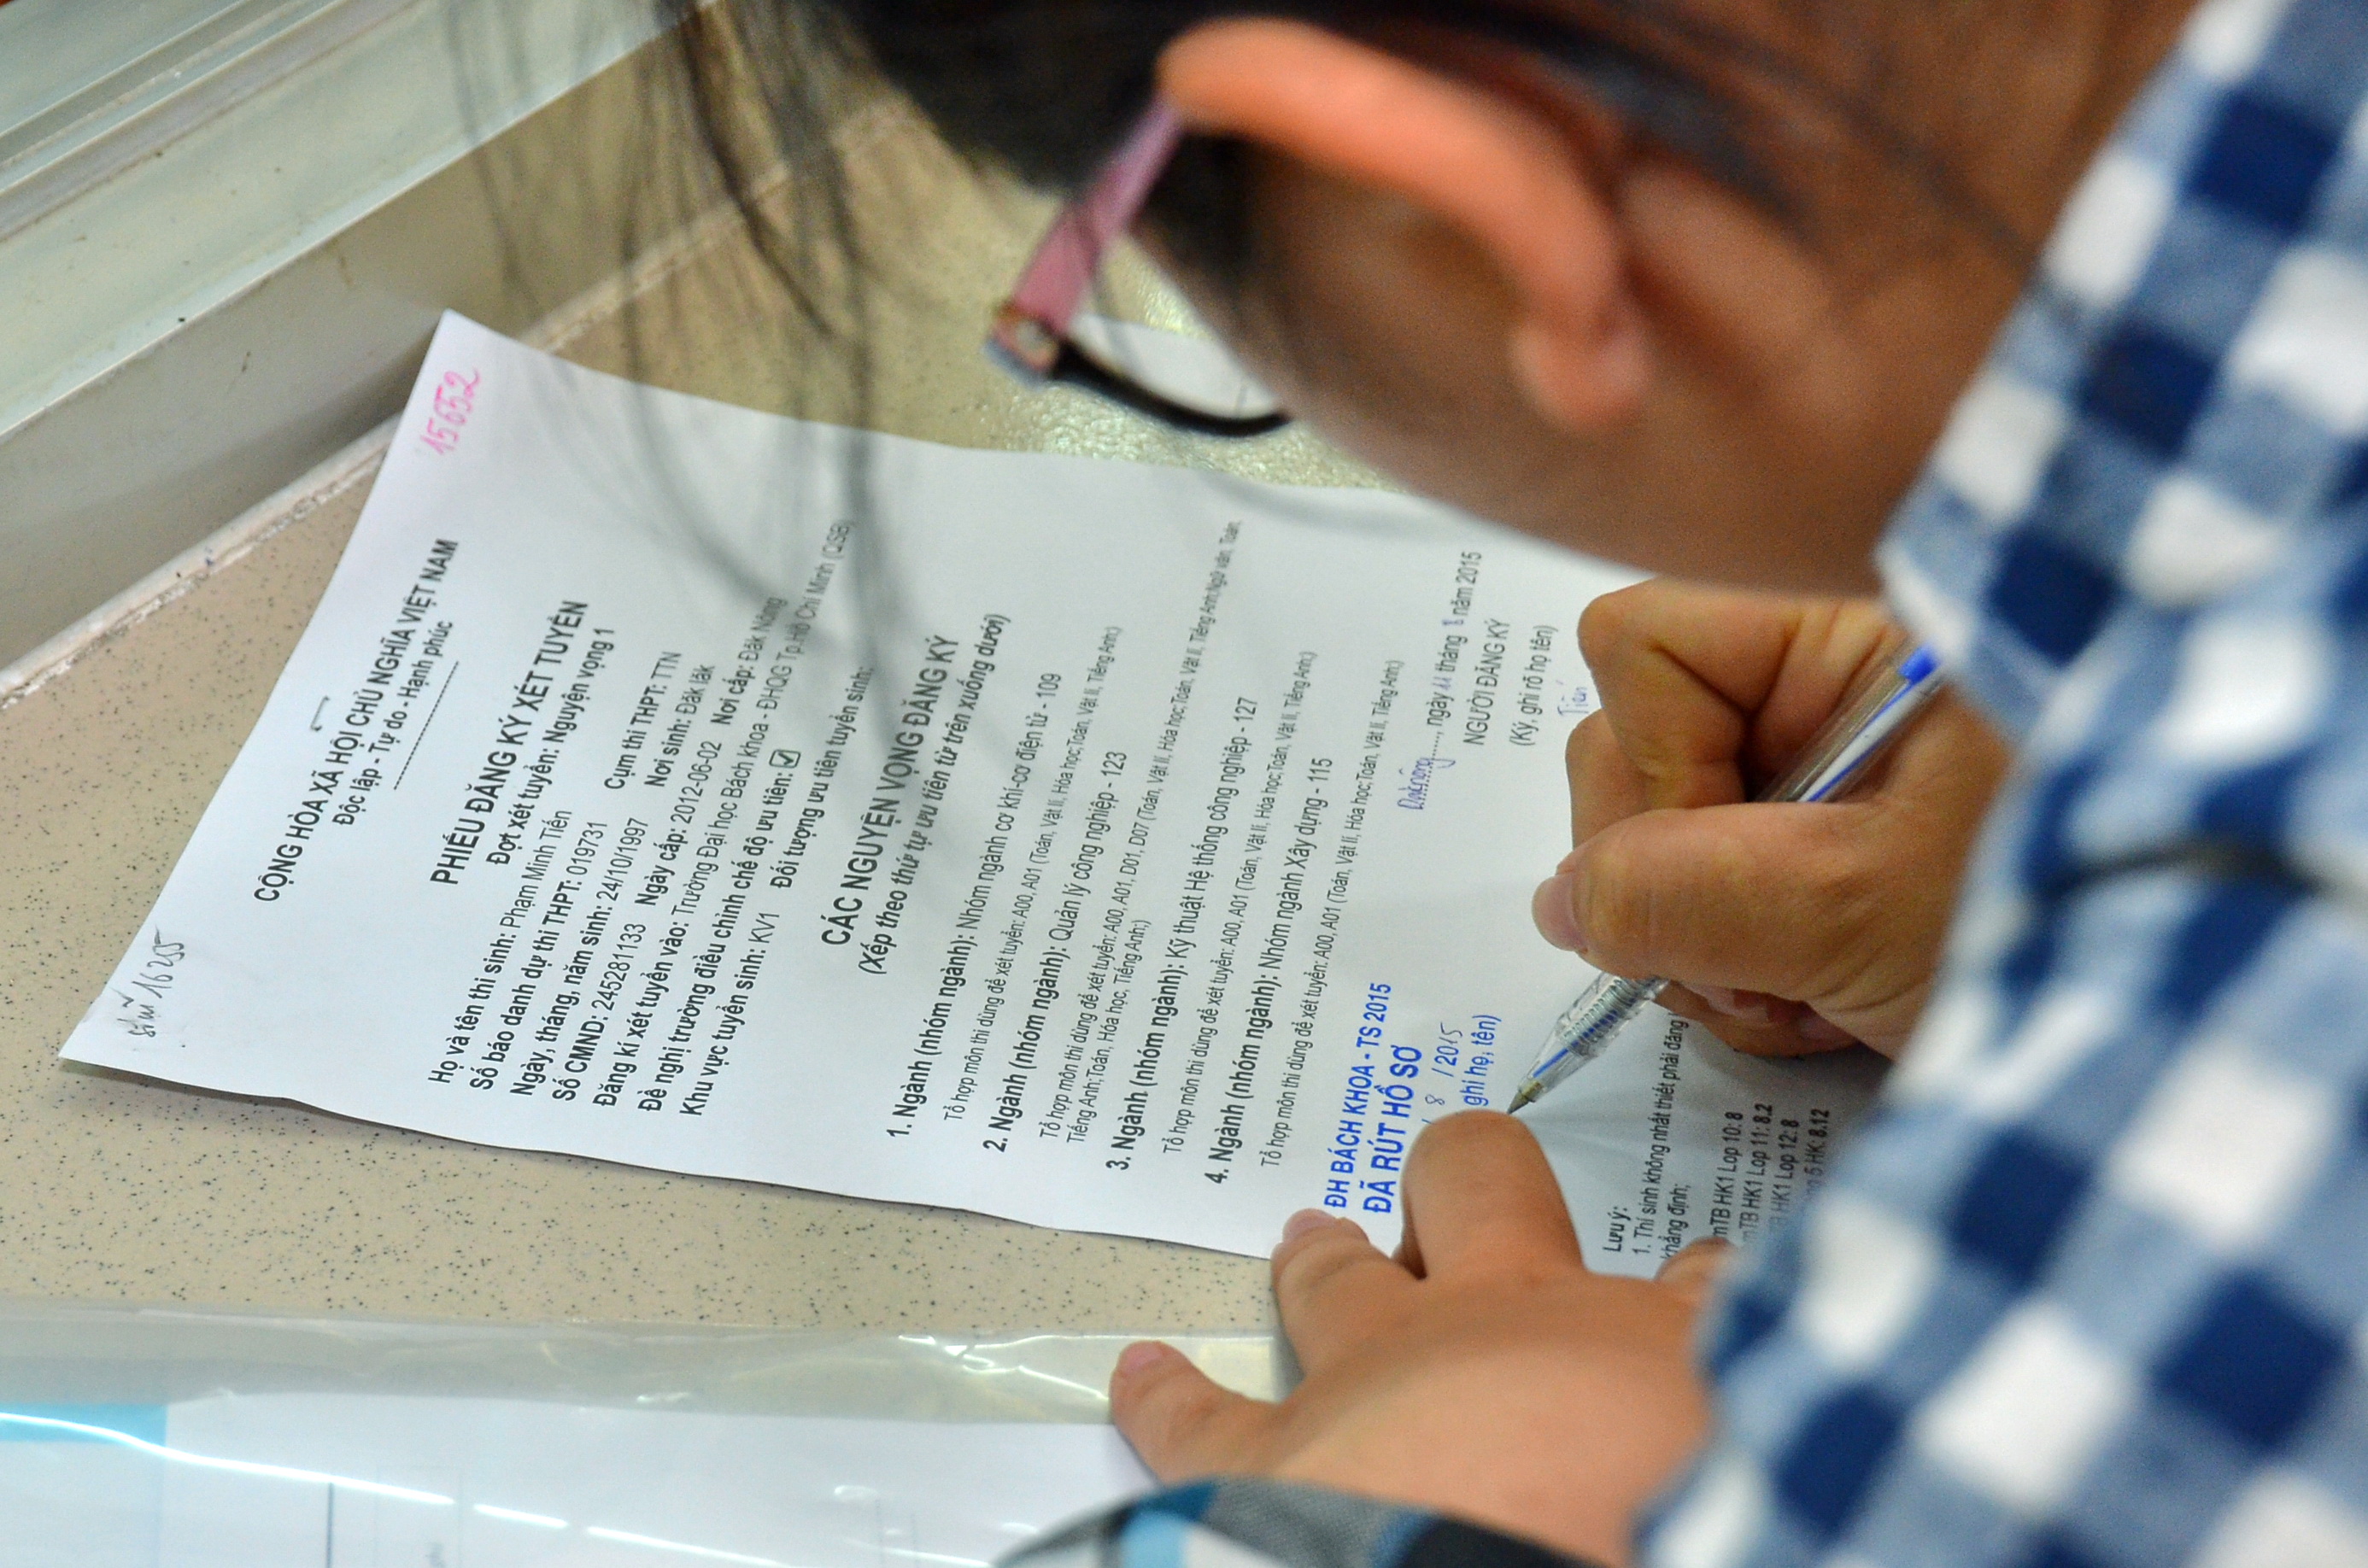 15652
16255
CỘNG HÒA XÃ HỘI CHỦ NGHĨA VIỆT NAM
Độc lập - Tự do - Hạnh phúc
PHIẾU ĐĂNG KÝ XÉT TUYỂN
Đợt xét tuyển: Nguyện vọng 1
Họ và tên thí sinh: Phạm Minh Tiến
Số báo danh dự thi THPT: 019731 Cụm thi THPT: TTN
Ngày, tháng, năm sinh: 24/10/1997 Nơi sinh: Đăk lăk
Số CMND: 245281133 Ngày cấp: 2012-06-02 Nơi cấp: Đăk Nông
Đăng kí xét tuyển vào: Trường Đại học Bách khoa - ĐHQG Tp.Hồ Chí Minh (QSB)
Đề nghị trường điều chỉnh chế độ ưu tiên: ☑
Khu vực tuyển sinh: KV1 Đối tượng ưu tiên tuyển sinh:
CÁC NGUYỆN VỌNG ĐĂNG KÝ
(Xếp theo thứ tự ưu tiên từ trên xuống dưới)
1. Ngành (nhóm ngành): Nhóm ngành cơ khí-cơ điện tử - 109
Tổ hợp môn thi dùng để xét tuyển: A00, A01 (Toán, Vật lí, Hóa học;Toán, Vật lí, Tiếng Anh;)
2. Ngành (nhóm ngành): Quản lý công nghiệp - 123
Tổ hợp môn thi dùng để xét tuyển: A00, A01, D01, D07 (Toán, Vật lí, Hóa học;Toán, Vật lí, Tiếng Anh;Ngữ văn, Toán,
Tiếng Anh;Toán, Hóa học, Tiếng Anh;)
3. Ngành (nhóm ngành): Kỹ thuật Hệ thống công nghiệp - 127
Tổ hợp môn thi dùng để xét tuyển: A00, A01 (Toán, Vật lí, Hóa học;Toán, Vật lí, Tiếng Anh;)
4. Ngành (nhóm ngành): Nhóm ngành Xây dựng - 115
Tổ hợp môn thi dùng để xét tuyển: A00, A01 (Toán, Vật lí, Hóa học;Toán, Vật lí, Tiếng Anh;)
, ngày 11 tháng 8 năm 2015
NGƯỜI ĐĂNG KÝ
(Ký, ghi rõ họ tên)
Tiến
ĐH BÁCH KHOA - TS 2015
ĐÃ RÚT HỒ SƠ
/ 8 / 2015
ghi họ, tên)
Lưu ý:
1. Thí sinh không nhất thiết phải đăng
khẳng định;
mTB HK1 Lop 10: 8
mTB HK1 Lop 11: 8.2
HK1 Lop 12: 8
5 HK: 8.12